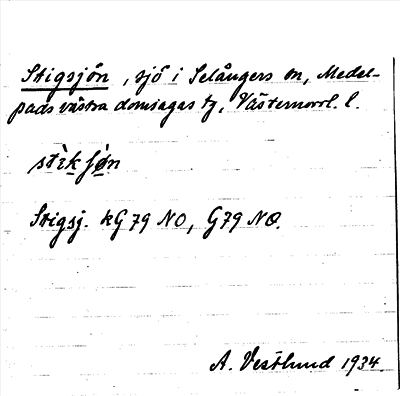 Stigsjön, sjö i Selångers sn, Medel-
pads västra domsagas tg, Västernorrl. l.
stìk ʃø̀n
Stigsj. kG 79 NO, G 79 NO.
A. Vestlund 1934